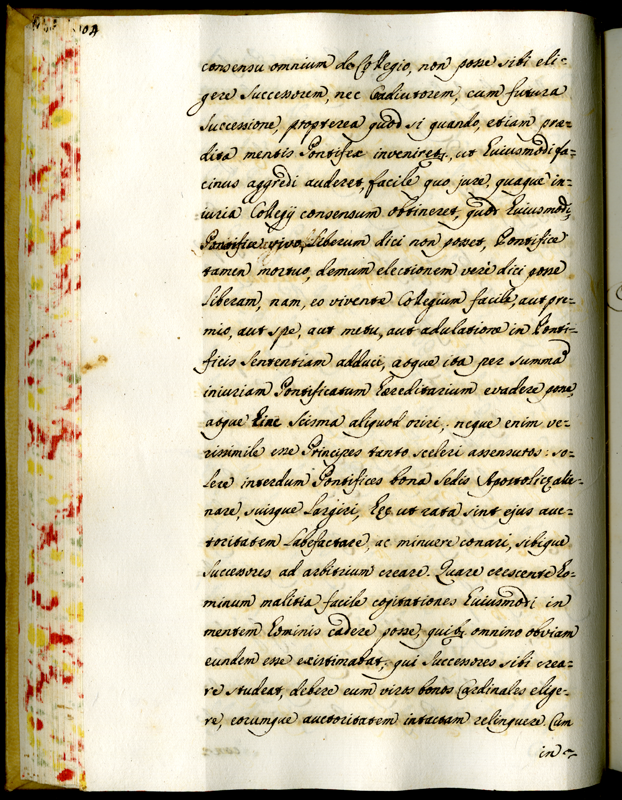 104
consensu omnium de Collegio, non posse sibi eli=
gere Successorem, nec Coadiutorem, cum futura
Successione, propterea quod si quando, etiam præ=
dita mentis Pontifex inveniret, ut Euiusmodi fa=
cinus aggredi auderet, facile quo jure, quaque in=
iuria Collegij consensum obtineret, quod Euiusmodi,
Pontifice vivo, Liberum dici non posset, Pontifice
tamen mortuo, demum electionem verè dici posse
liberam, nam, eo vivente Collegium facile, aut pre=
mio, aut spe, aut metu, aut adulatione in Ponti=
ficis sententiam adduci, atque ita per summã
iniuriam Pontificatum Ereditarium evadere posse,
atque Einc Scisma aliquod oriri, neque enim ve=
risimile esse Principes tanto sceleri assensuros: so=
lere interdum Pontifices bona Sedis Apostolicæ alie=
nare, suisque Largiri, Ec ut rata sint ejus auc=
toritatem Labefactare, ac minuere conari, sibique
Successores ad arbitrium creare. Quare crescente Eo=
minum malitia facile cogitationes Euiusmodi in
mentem Eominis cadere posse, quib. omnimo obviam
eundem esse existimabat, qui Successores sibi crea=
re studeat, debere eum viros bonos Cardinales elige=
re, eorumque auctoritatem intactam relinquere. Cum
in